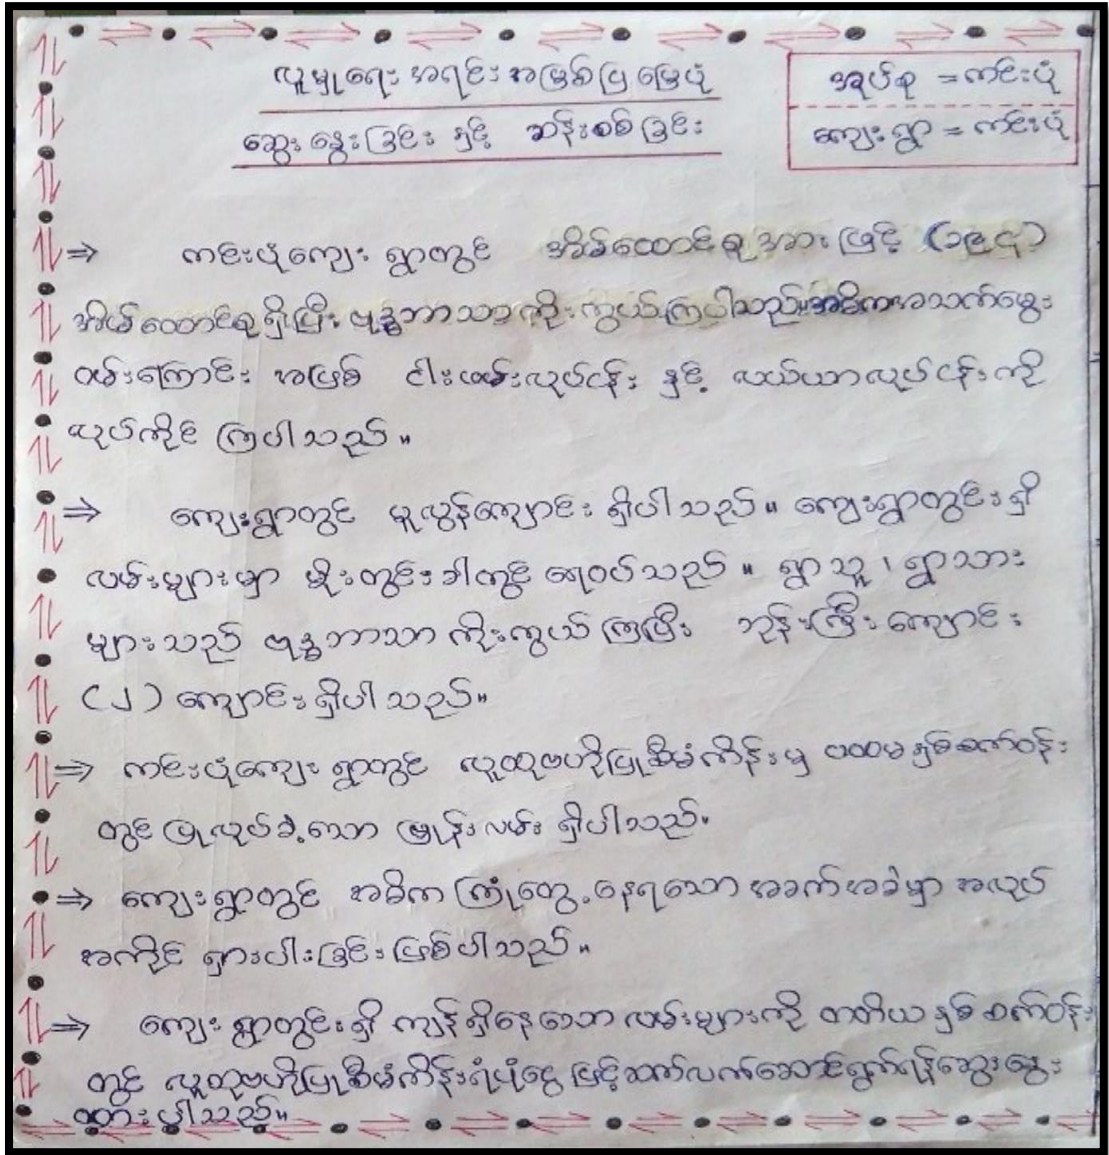 လူမှုရေး အရင်းအမြစ်ပြ မြေပုံ
ဆွေးနွေးခြင်း နှင့် ဆန်းစစ်ခြင်း
အုပ်စု = ကင်းပုံ
ကျေးရွာ = ကင်းပုံ
⇒ ကင်းပုံကျေးရွာတွင် အိမ်ထောင်စုအားဖြင့် (၁၉၄)
အိမ်ထောင်စုရှိပြီး ဗုဒ္ဓဘာသာကိုးကွယ်ကြပါသည်။ အဓိကအသက်မွေး
ဝမ်းကြောင်း အဖြစ် ငါးဖမ်းလုပ်ငန်း နှင့် လယ်ယာလုပ်ငန်းကို
လုပ်ကိုင် ကြပါသည်။
⇒ ကျေးရွာတွင် မူလွန်ကျောင်း ရှိပါသည်။ ကျေးရွာတွင်းရှိ
လမ်းများမှာ မိုးတွင်းခါတွင် ရေဝပ်သည်။ ရွာသူ၊ ရွာသား
များသည် ဗုဒ္ဓဘာသာ ကိုးကွယ်ကြပြီး ဘုန်းကြီးကျောင်း
(၂) ကျောင်းရှိပါသည်။
⇒ ကင်းပုံကျေးရွာတွင် လူထုဗဟိုပြုစီမံကိန်းမှ ပထမနှစ်စက်ဝန်း
တွင် ပြုလုပ်ခဲ့သော မြေနီလမ်း ရှိပါသည်။
⇒ ကျေးရွာတွင် အဓိက ကြုံတွေ့နေရသော အခက်အခဲမှာ အလုပ်
အကိုင် ရှားပါးခြင်းဖြစ်ပါသည်။
⇒ ကျေးရွာတွင်းရှိ ကျန်ရှိနေသော လမ်းများကို တတိယနှစ်စက်ဝန်း
တွင် လူထုဗဟိုပြုစီမံကိန်းရံပုံငွေ ဖြင့်ဆက်လက်ဆောင်ရွက်ရန်ဆွေးနွေး
ထားပါသည်။